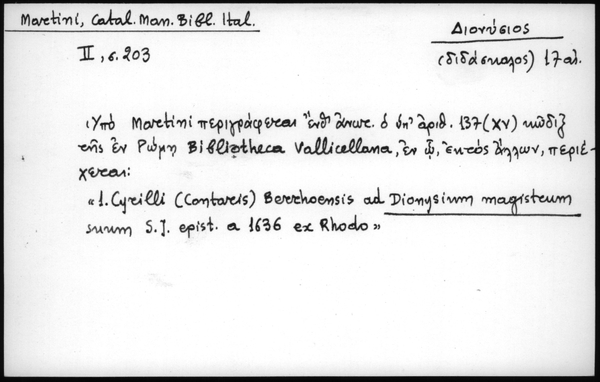 Martini, Catal. Man. Bibl. Ital.
Διονύσιος
II, σ. 203
(διδάσκαλος) 17 αι.
Ὑπό Martini περιγράφεται ἔνθ' ἄνωτ. ὁ ὑπ' ἀριθ. 137 (XV) κώδιξ
τῆς ἐν Ρώμῃ Bibliotheca Vallicellana, ἐν ᾧ, ἐκτός ἄλλων, περιέ-
χεται:
« 1. Cyrilli (Contaris) Berrhoensis ad Dionysium magistrum
suum S.J. epist. a 1636 ex Rhodo »